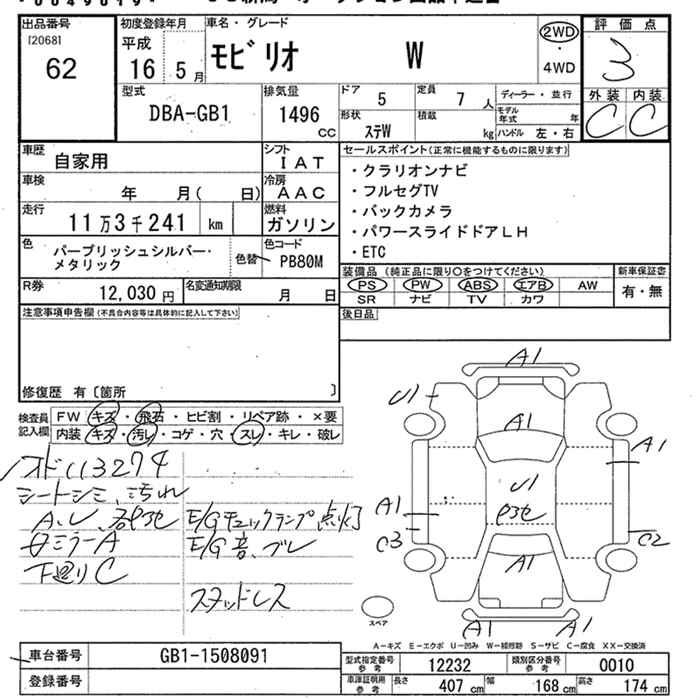 出品番号
[2068]
62
初度登録年月
平成
16 5月
車名・グレード
モビリオ W
2WD
・
4WD
評価点
3
外装 内装
C C
型式
DBA-GB1
排気量
1496
CC
ドア
5
定員
7人
ディーラー・並行
モデル年式 年
形状
ステW
積載
kg
ハンドル 左・右
車歴
自家用
シフト
IAT
車検
年 月( 日)
冷房
AAC
走行
11万3千241 km
燃料
ガソリン
色
パープリッシュシルバー・
メタリック
色替
色コード
PB80M
R券
12,030円
名変通知期限
月 日
セールスポイント(正常に機能するものに限ります)
・クラリオンナビ
・フルセグTV
・バックカメラ
・パワースライドドアLH
・ETC
装備品(純正品に限り○をつけてください)
PS PW ABS エアB AW
SR ナビ TV カワ
新車保証書
有・無
後日品
注意事項申告欄(不具合内容等は具体的に記入して下さい)
修復歴 有〔箇所 〕
検査員
記入欄
FW キズ・飛石・ヒビ割・リペア跡・×要
内装 キズ・汚レ・コゲ・穴・スレ・キレ・破レ
113274
シートシミ、汚れ
E/Gチェックランプ点灯
A
E/G音、ブレ
下廻りC
スタッドレス
A1
U1
A1
A1
U1
A1
C3
C2
A1
A1
A1
スペア
A-キズ E-エクボ U-凹み W-補修跡 S-サビ C-腐食 XX-交換済
車台番号
GB1-1508091
登録番号
型式指定番号
参考
12232
類別区分番号
参考
0010
車庫証明用
参考
長さ 407 cm
幅 168 cm
高さ 174 cm